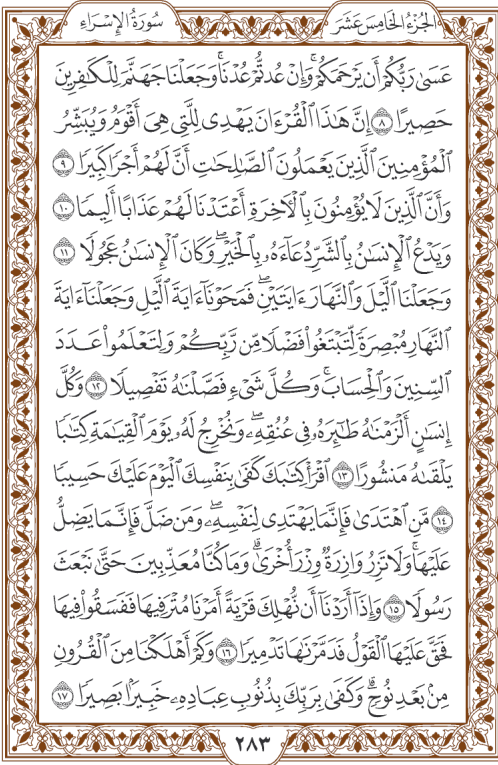 الجزء الخامس عشر سورة الإسراء
عَسَىٰ رَبُّكُمْ أَن يَرْحَمَكُمْۚ وَإِنْ عُدتُّمْ عُدْنَاۚ وَجَعَلْنَا جَهَنَّمَ لِلْكَٰفِرِينَ
حَصِيرًا ٨ إِنَّ هَٰذَا ٱلْقُرْءَانَ يَهْدِى لِلَّتِى هِىَ أَقْوَمُ وَيُبَشِّرُ
ٱلْمُؤْمِنِينَ ٱلَّذِينَ يَعْمَلُونَ ٱلصَّٰلِحَٰتِ أَنَّ لَهُمْ أَجْرًا كَبِيرًا ٩
وَأَنَّ ٱلَّذِينَ لَا يُؤْمِنُونَ بِٱلْءَاخِرَةِ أَعْتَدْنَا لَهُمْ عَذَابًا أَلِيمًا ١٠
وَيَدْعُ ٱلْإِنسَٰنُ بِٱلشَّرِّ دُعَآءَهُۥ بِٱلْخَيْرِۖ وَكَانَ ٱلْإِنسَٰنُ عَجُولًا ١١
وَجَعَلْنَا ٱلَّيْلَ وَٱلنَّهَارَ ءَايَتَيْنِۖ فَمَحَوْنَآ ءَايَةَ ٱلَّيْلِ وَجَعَلْنَآ ءَايَةَ
ٱلنَّهَارِ مُبْصِرَةً لِّتَبْتَغُوا۟ فَضْلًا مِّن رَّبِّكُمْ وَلِتَعْلَمُوا۟ عَدَدَ
ٱلسِّنِينَ وَٱلْحِسَابَۚ وَكُلَّ شَىْءٍ فَصَّلْنَٰهُ تَفْصِيلًا ١٢ وَكُلَّ
إِنسَٰنٍ أَلْزَمْنَٰهُ طَٰٓئِرَهُۥ فِى عُنُقِهِۦۖ وَنُخْرِجُ لَهُۥ يَوْمَ ٱلْقِيَٰمَةِ كِتَٰبًا
يَلْقَىٰهُ مَنشُورًا ١٣ ٱقْرَأْ كِتَٰبَكَ كَفَىٰ بِنَفْسِكَ ٱلْيَوْمَ عَلَيْكَ حَسِيبًا
١٤ مَّنِ ٱهْتَدَىٰ فَإِنَّمَا يَهْتَدِى لِنَفْسِهِۦۖ وَمَن ضَلَّ فَإِنَّمَا يَضِلُّ
عَلَيْهَاۚ وَلَا تَزِرُ وَازِرَةٌ وِزْرَ أُخْرَىٰۗ وَمَا كُنَّا مُعَذِّبِينَ حَتَّىٰ نَبْعَثَ
رَسُولًا ١٥ وَإِذَآ أَرَدْنَآ أَن نُّهْلِكَ قَرْيَةً أَمَرْنَا مُتْرَفِيهَا فَفَسَقُوا۟ فِيهَا
فَحَقَّ عَلَيْهَا ٱلْقَوْلُ فَدَمَّرْنَٰهَا تَدْمِيرًا ١٦ وَكَمْ أَهْلَكْنَا مِنَ ٱلْقُرُونِ
مِنۢ بَعْدِ نُوحٍۗ وَكَفَىٰ بِرَبِّكَ بِذُنُوبِ عِبَادِهِۦ خَبِيرًۢا بَصِيرًا ١٧
٢٨٣